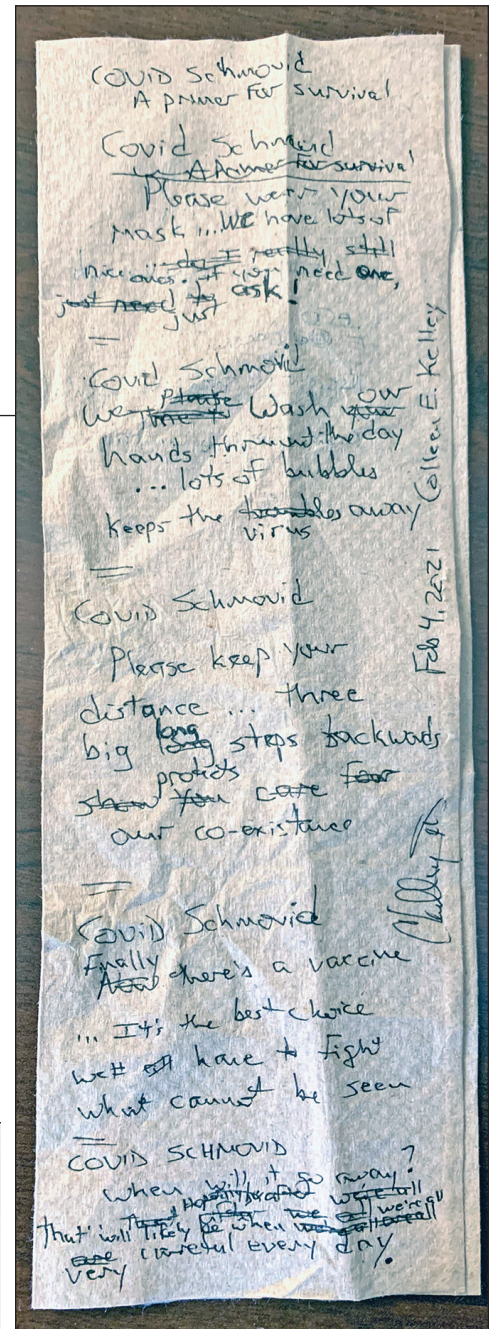 COVID Schmovid
A primer For survival
Covid Schmovid
A Primer For survival
Please wear your
mask ... We have lots of
do I really still
nice ones. If you need one,
just need to ask!
just
Covid Schmovid
We Please Wash your our
hands thruout the day
... lots of bubbles
keeps the away
virus
COVID Schmovid
Please keep your
distance ... three
big long steps backwards
protects
show you care for
our co-existance
COVID Schmovid
Finally there's a vaccine
... It's the best choice
we have to fight
what cannot be seen
COVID SCHMOVID
when will it go away?
that will likely be when we're all
are careful every day.
very
Feb 4, 2021 Colleen E. Kelley